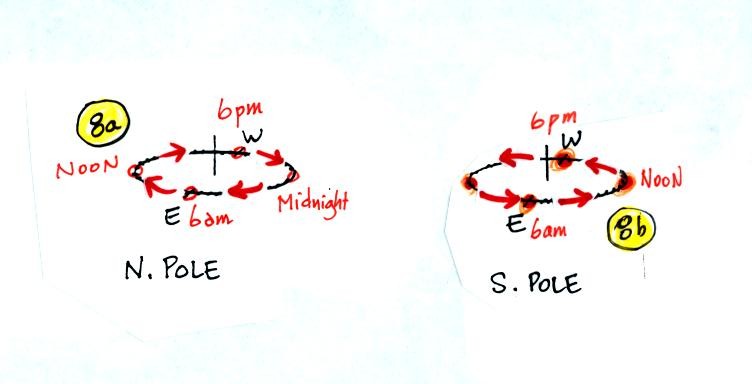 8a
6pm
W
NOON
Midnight
E 6am
N. POLE
6pm
W
NOON
E 6am
8b
S. POLE